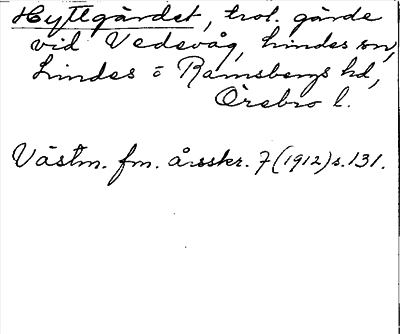 Hyttgärdet, trol. gärde
vid Vedevåg, Lindes sn,
Lindes o Ramsbergs hd,
Örebro l.
Västm. fm. årsskr. 7 (1912) s. 131.